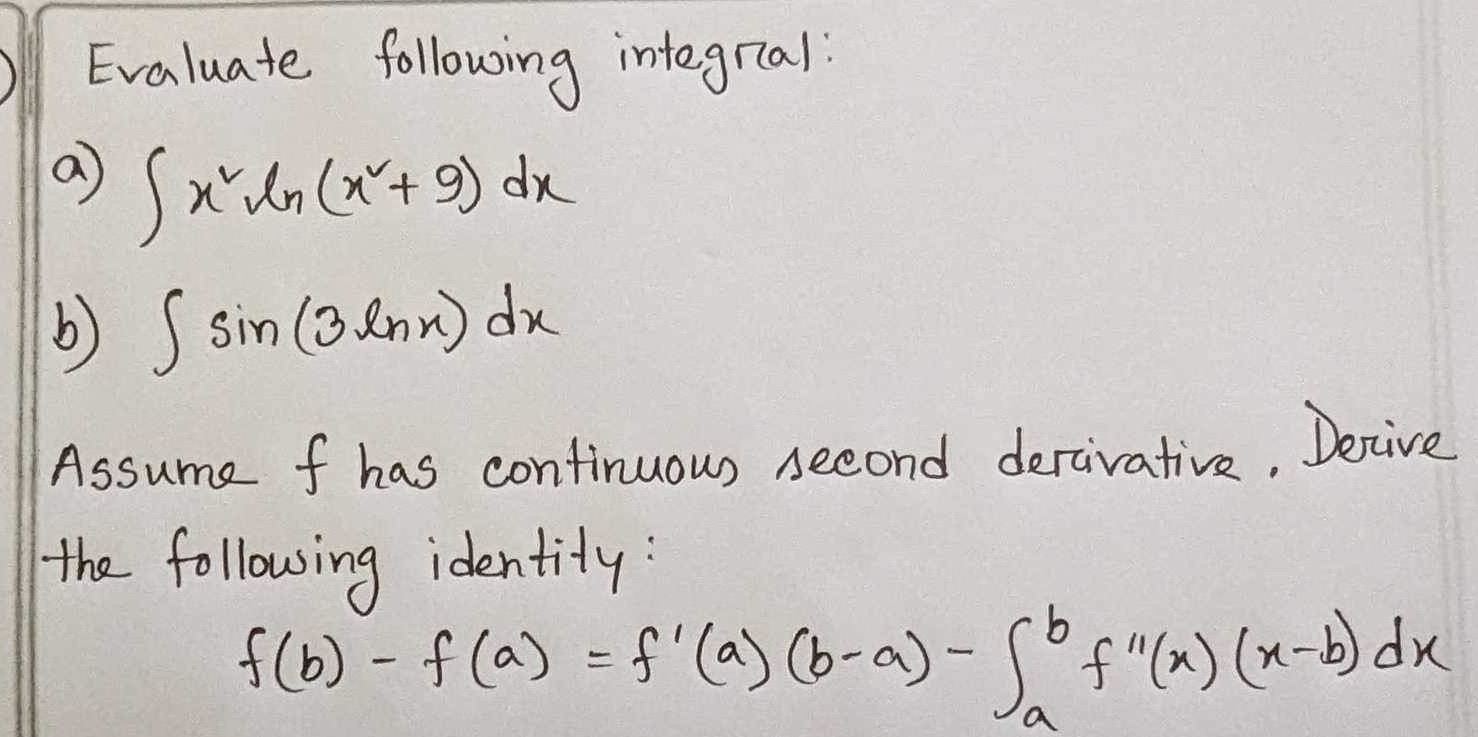 Evaluate following integral:
a) ∫ x² ln(x²+9) dx
b) ∫ sin(3 lnx) dx
Assume f has continuous second derivative. Derive
the following identity:
f(b) - f(a) = f'(a)(b-a) - ∫ₐᵇ f"(x)(x-b) dx